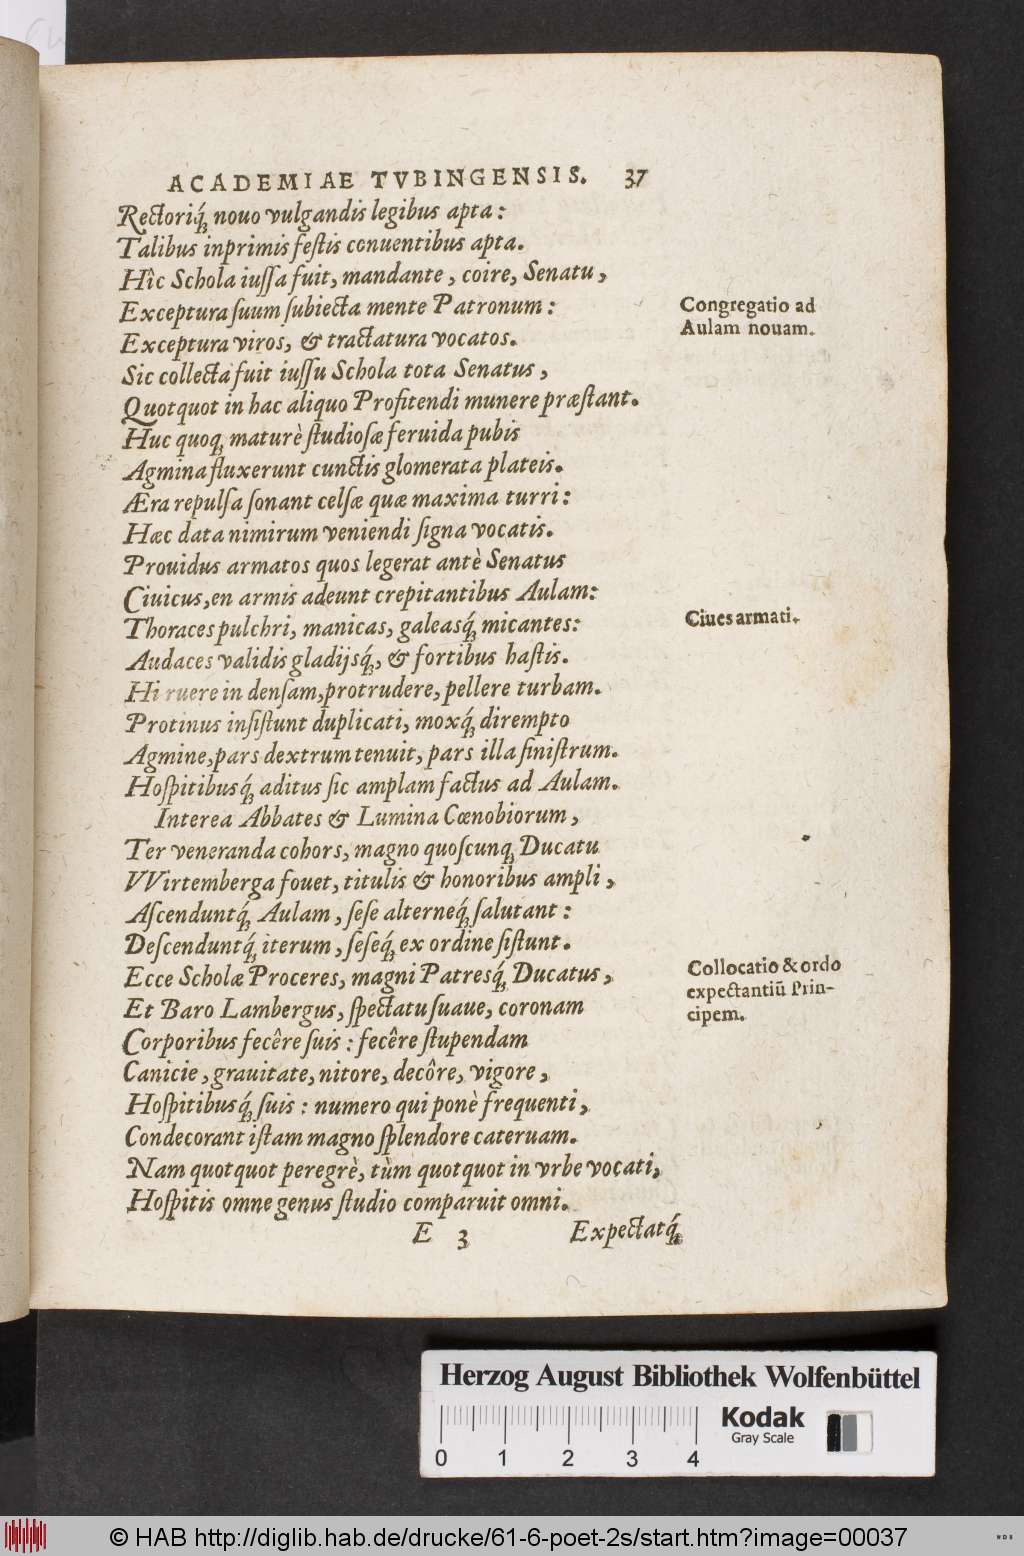 ACADEMIAE TVBINGENSIS. 37
Rectoriq́ꝫ nouo vulgandis legibus apta:
Talibus inprimis feſtis conuentibus apta.
Hîc Schola iuſſa fuit, mandante, coire, Senatu,
Exceptura ſuum ſubiecta mente Patronum:
Exceptura viros, & tractatura vocatos.
Congregatio ad
Aulam nouam.
Sic collecta fuit iuſſu Schola tota Senatus,
Quotquot in hac aliquo Profitendi munere præſtant.
Huc quoqꝫ maturè ſtudioſæ feruida pubis
Agmina fluxerunt cunctis glomerata plateis.
Æra repulſa ſonant celſæ quæ maxima turri:
Hæc data nimirum veniendi ſigna vocatis.
Prouidus armatos quos legerat antè Senatus
Ciuicus, en armis adeunt crepitantibus Aulam:
Thoraces pulchri, manicas, galeasq́ꝫ micantes:
Ciues armati.
Audaces validis gladijsq́ꝫ, & fortibus haſtis.
Hi ruere in denſam, protrudere, pellere turbam.
Protinus inſiſtunt duplicati, moxq́ꝫ dirempto
Agmine, pars dextrum tenuit, pars illa ſiniſtrum.
Hoſpitibusq́ꝫ aditus ſic amplam factus ad Aulam.
Interea Abbates & Lumina Cœnobiorum,
Ter veneranda cohors, magno quoſcunqꝫ Ducatu
VVirtemberga fouet, titulis & honoribus ampli,
Aſcenduntq́ꝫ Aulam, ſeſe alterneq́ꝫ ſalutant:
Deſcenduntq́ꝫ iterum, ſeſeq́ꝫ ex ordine ſiſtunt.
Ecce Scholæ Proceres, magni Patresq́ꝫ Ducatus,
Et Baro Lambergus, ſpectatu ſuaue, coronam
Collocatio & ordo
expectantiũ Prin-
cipem.
Corporibus fecêre ſuis: fecêre ſtupendam
Canicie, grauitate, nitore, decôre, vigore,
Hoſpitibusq́ꝫ ſuis: numero qui ponè frequenti,
Condecorant iſtam magno ſplendore cateruam.
Nam quotquot peregrè, tùm quotquot in vrbe vocati,
Hoſpitis omne genus ſtudio comparuit omni.
E 3 Expectatq́ꝫ
Herzog August Bibliothek Wolfenbüttel
Kodak
Gray Scale
0 1 2 3 4
© HAB http://diglib.hab.de/drucke/61-6-poet-2s/start.htm?image=00037